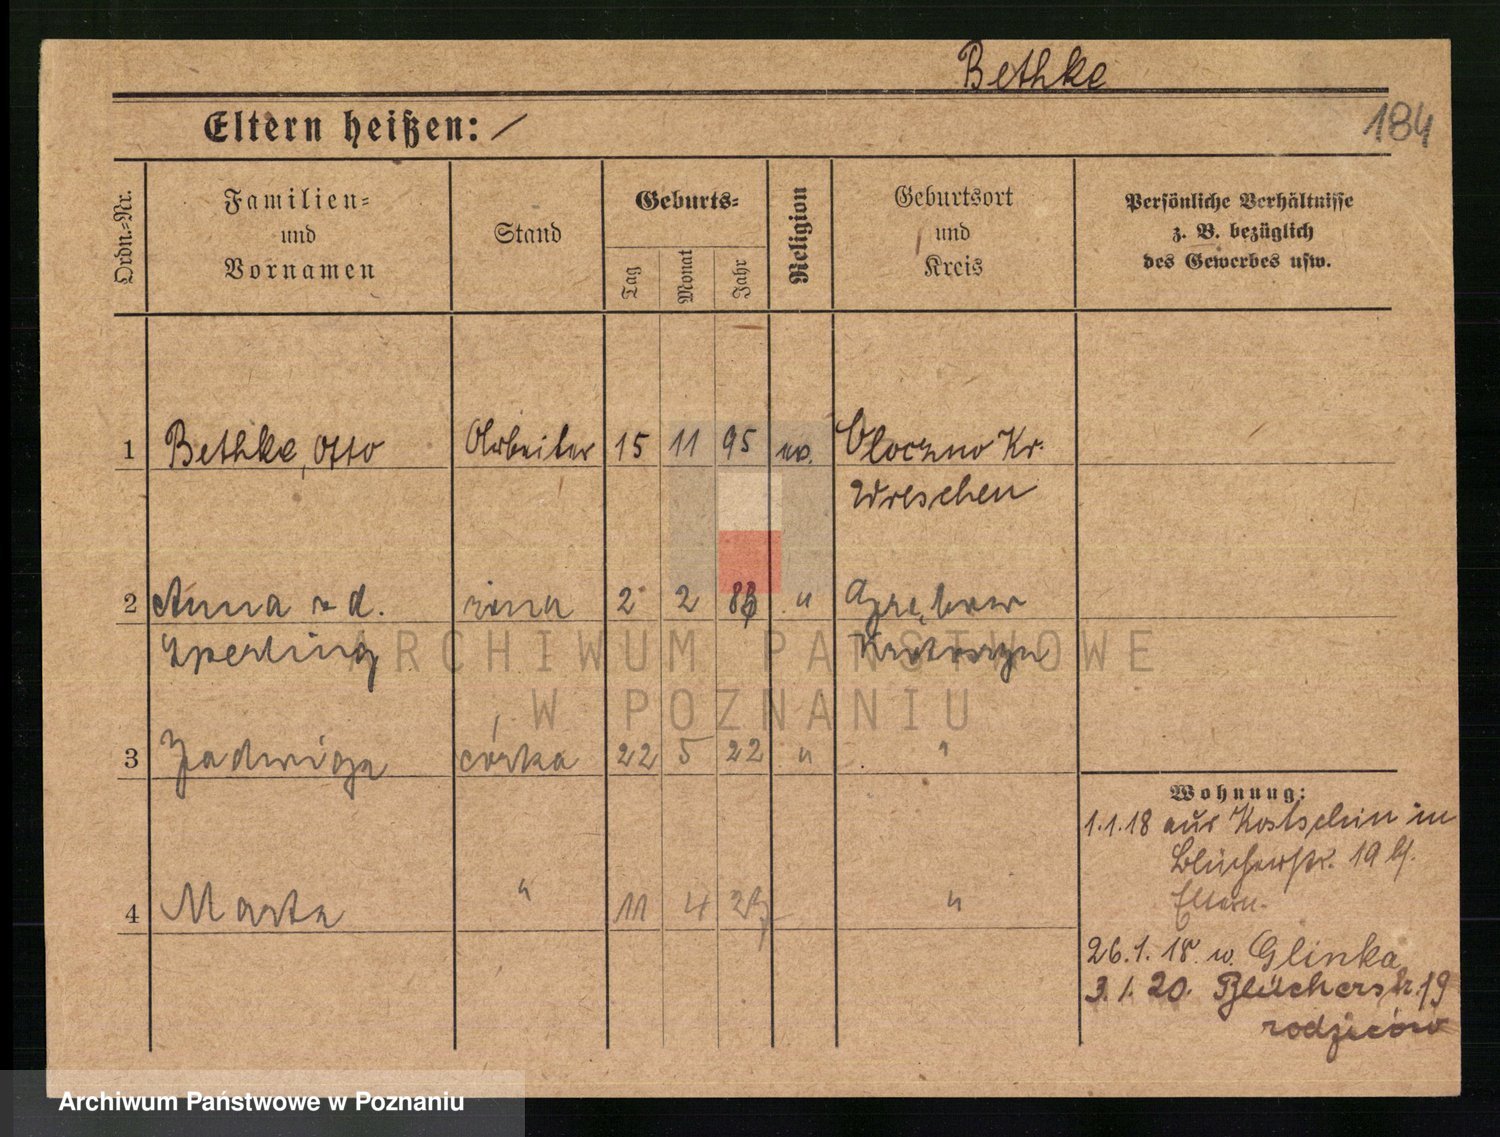 Bethke
184
Eltern heißen: /
Ordn.-Nr.
Familien=
und
Vornamen
Stand
Geburts=
Tag
Monat
Jahr
Religion
Geburtsort
und
Kreis
Persönliche Verhältnisse
z. B. bezüglich
des Gewerbes usw.
1 Bethke, Otto Arbeiter 15 11 95 ev. Kr.
Wreschen
2 Anna z d. żona 2 2 "
Sperling
3 Jadwiga córka 22 5 22 " "
4 Marta " 11 4 "
Wohnung:
1.1.18 aus Kostschin in
Blücherstr. 19 b/.
Eltern.
26.1.18. w. Glinka
3.1.20. Blücherstr. 19
rodziców
ARCHIWUM PAŃSTWOWE
W POZNANIU
Archiwum Państwowe w Poznaniu